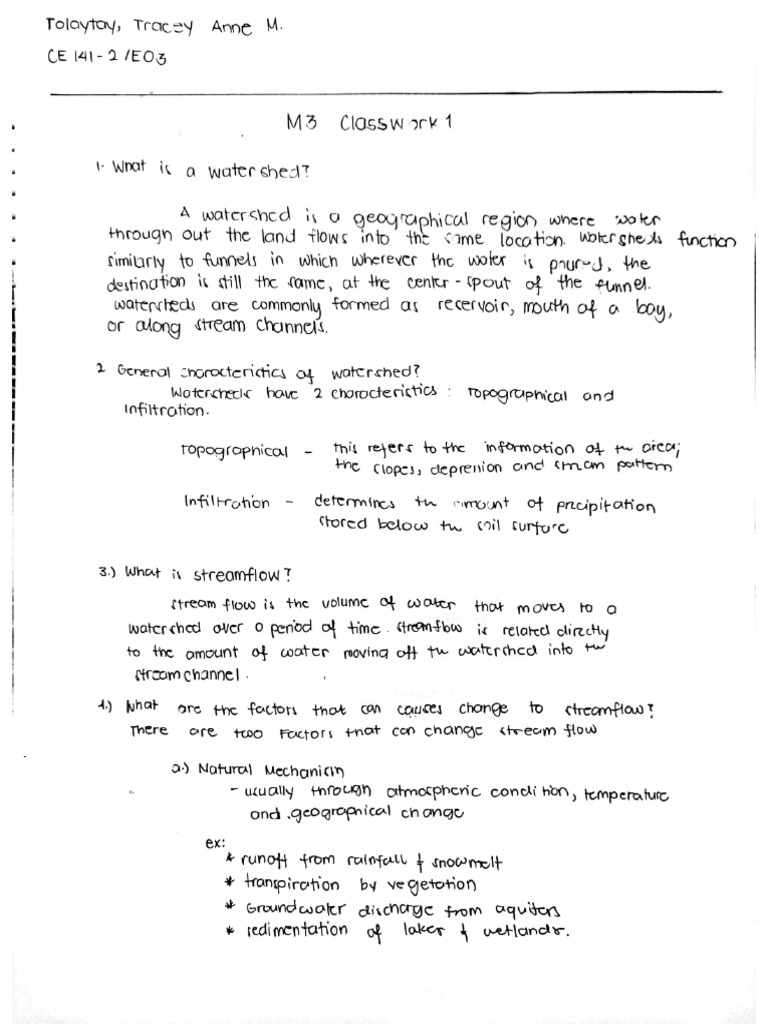 Tolaytay, Tracey Anne M.
CE 141-2 /E03
M3 Classwork 1
1. What is a watershed?
A watershed is a geographical region where water
through out the land flows into the same location. Watersheds function
similarly to funnels in which wherever the water is poured, the
destination is still the same, at the center-spout of the funnel.
Watersheds are commonly formed as reservoir, mouth of a bay,
or along stream channels.
2 General characteristics of watershed?
Watersheds have 2 characteristics : Topographical and
Infiltration.
Topographical - this refers to the information of the area;
the slopes, depression and stream pattern
Infiltration - determines the amount of precipitation
stored below the soil surface
3.) What is streamflow?
Stream flow is the volume of water that moves to a
watershed over a period of time. Streamflow is related directly
to the amount of water moving off the watershed into the
stream channel.
4.) What are the factors that can causes change to streamflow?
There are two Factors that can change stream flow
a.) Natural Mechanism
- usually through atmospheric condition, temperature
and geographical change
ex:
* runoff from rainfall & snowmelt
* transpiration by vegetation
* Groundwater discharge from aquifers
* sedimentation of lakes & wetlands.